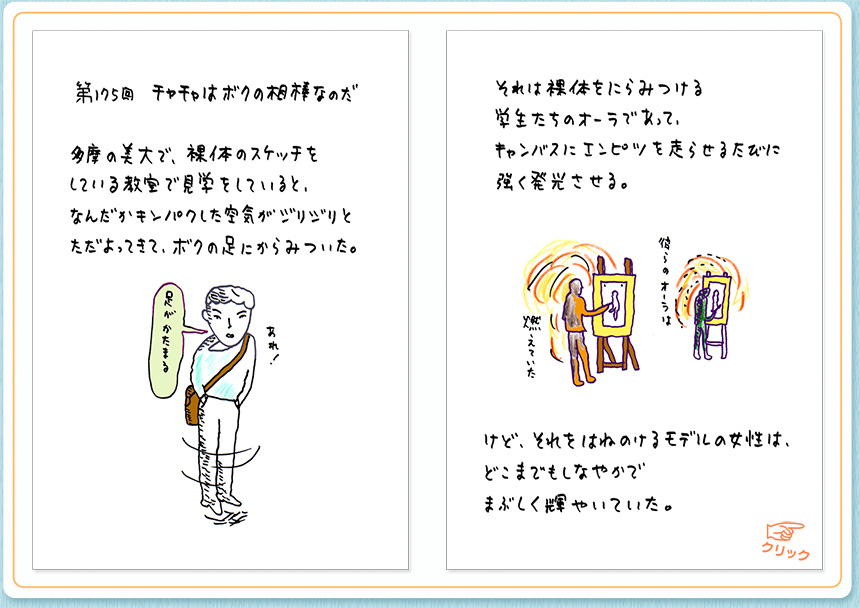 第175回 チャチャはボクの相棒なのだ
多摩の美大で、裸体のスケッチを
している教室で見学をしていると、
なんだかキンパクした空気がジリジリと
ただよってきて、ボクの足にからみついた。
足がかたまる
あれ!
それは裸体をにらみつける
学生たちのオーラであって、
キャンバスにエンピツを走らせるたびに
強く発光させる。
彼らのオーラは
燃えていた
けど、それをはねのけるモデルの女性は、
どこまでもしなやかで
まぶしく輝やいていた。
クリック